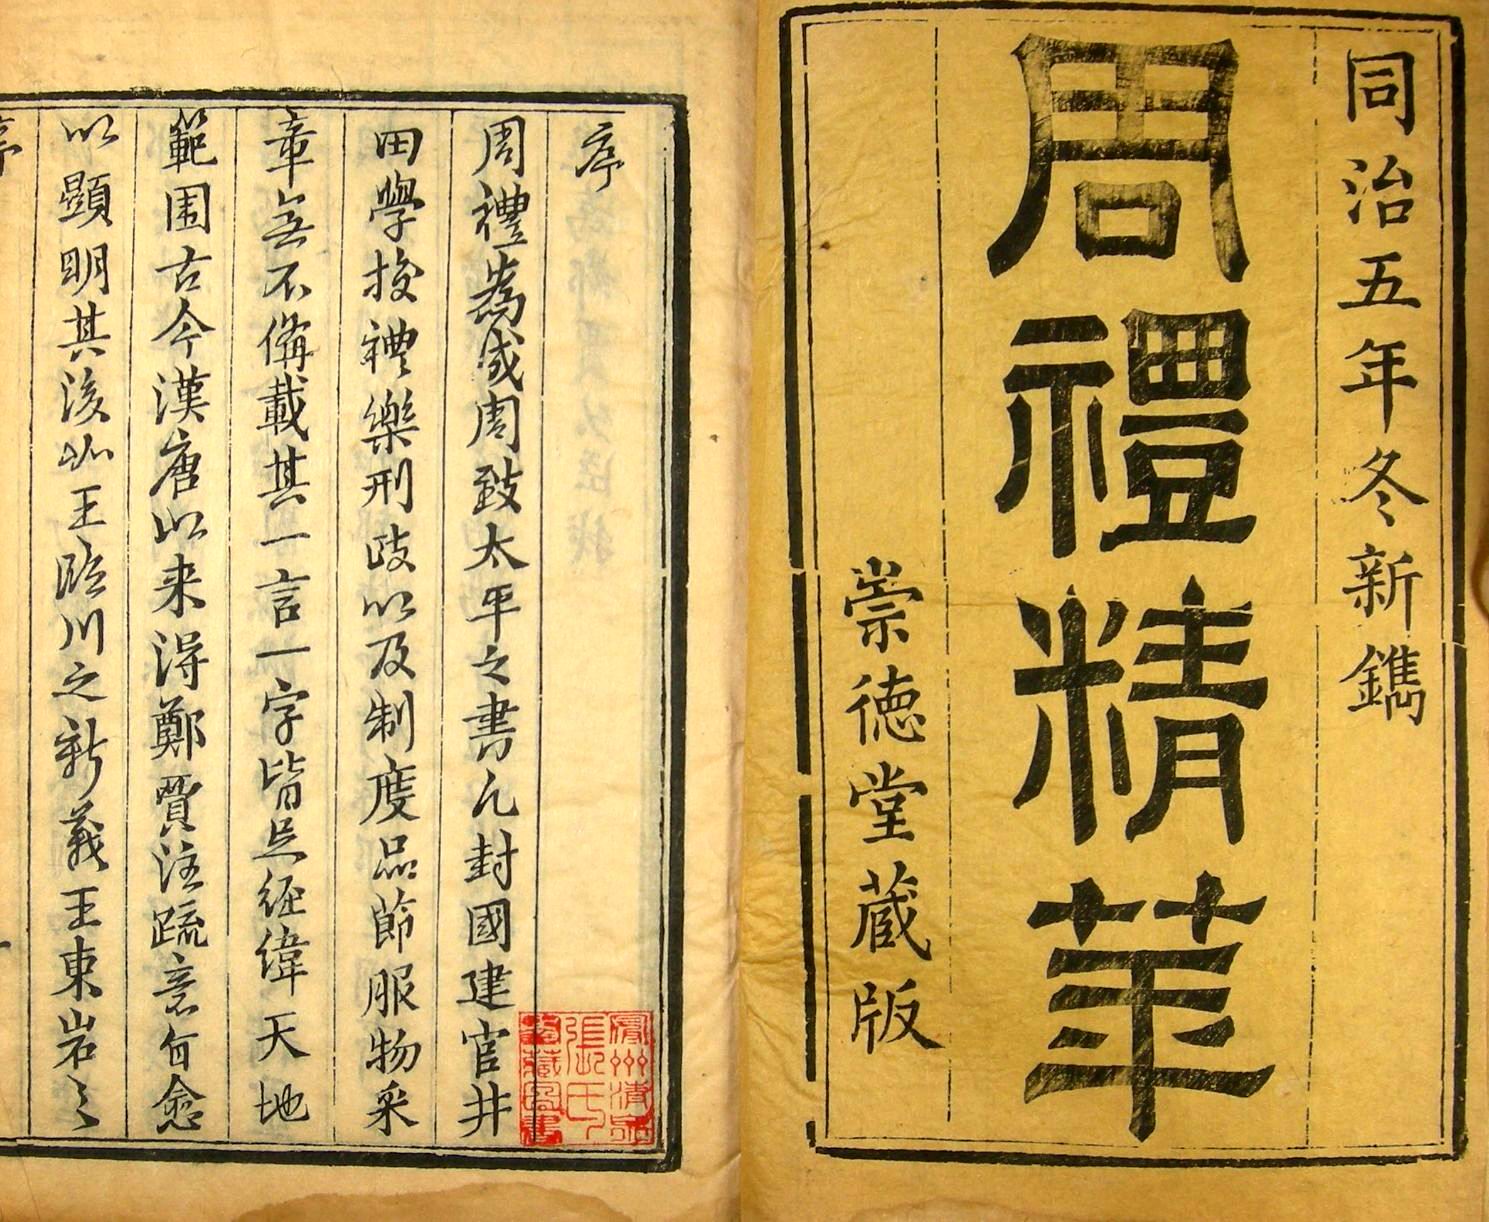 同治五年冬新鐫
周禮精華
崇德堂蔵版
序
周禮為成周致太平之書凡封國建官井
田學校禮樂刑政以及制度品節服物采
章無不備載其一言一字皆足經緯天地
範圍古今漢唐以來得鄭賈注疏意旨愈
以顯明其後如王臨川之新義王東岩之
序
張氏
藏圖書